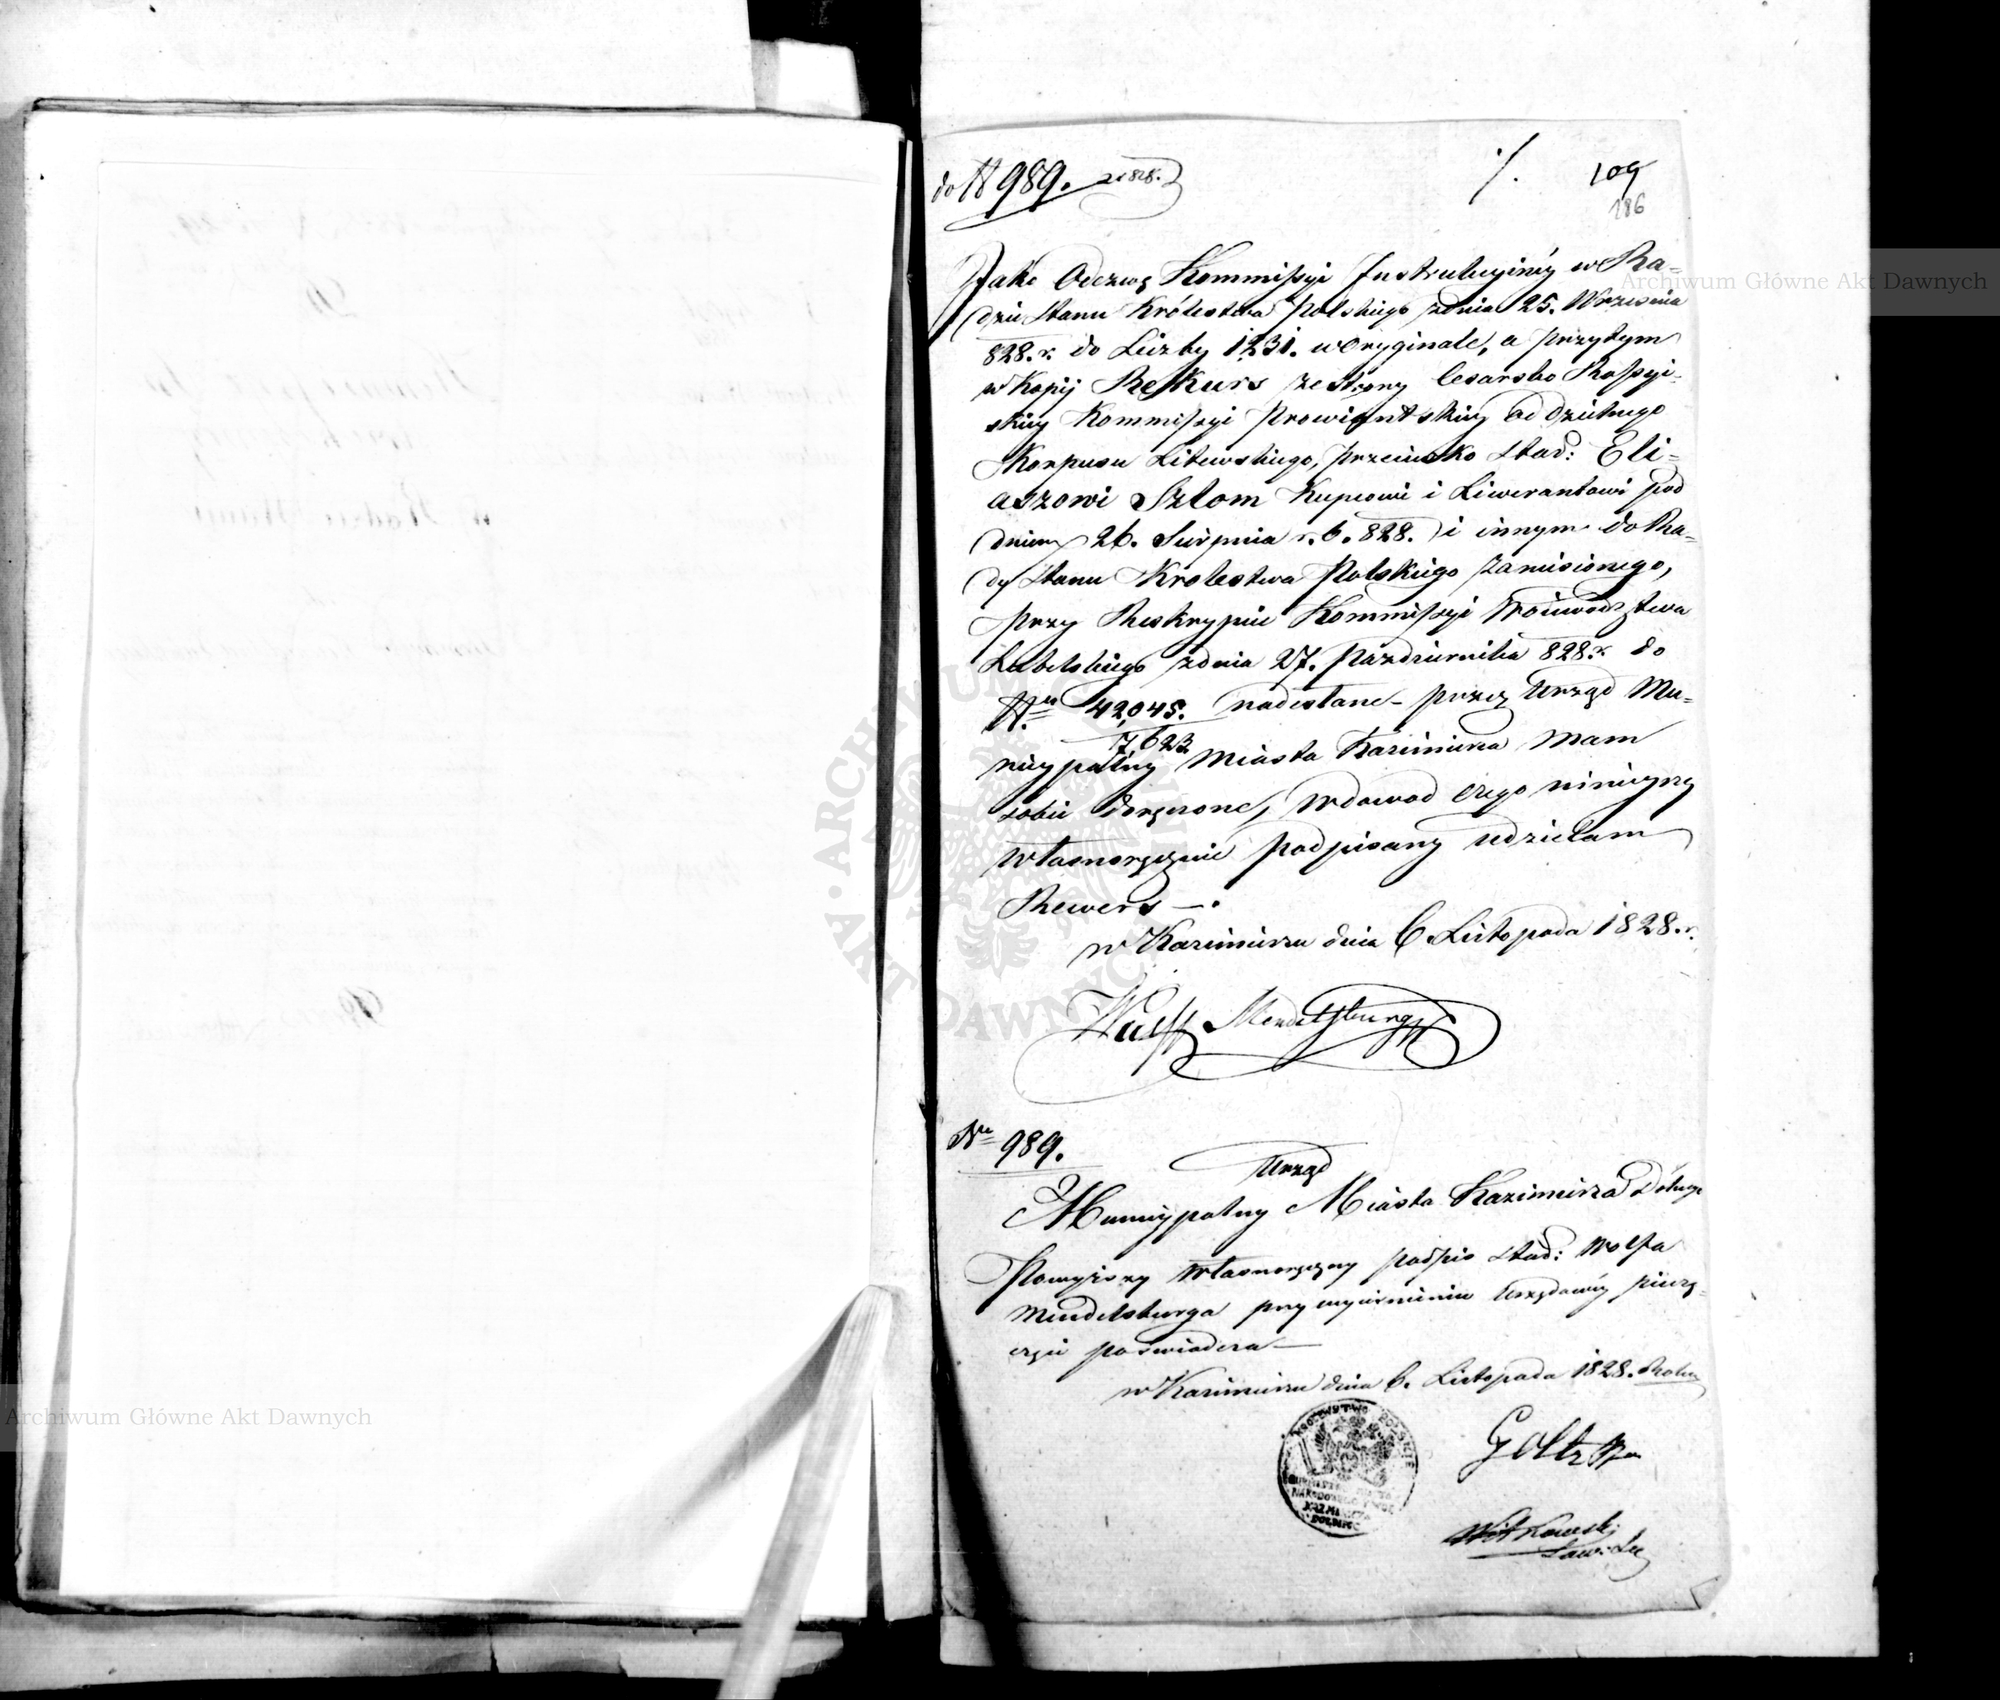 do N 989. 1828.
109
186
Jako Odezwę Kommissyi Instrukcyiney w Ra-
dzie Stanu Królestwa Polskiego zdnia 25. Września
828. r. do Liczby 1231. w Oryginale, a przytym
w Kopij Rekurs ze strony Cesarsko Rossyi-
skiey Kommissyi Prowiantskiey oddzielnego
Korpusu Litewskiego, przeciwko Star: Eli-
aszowi Szlom Kupcowi i Liwerantowi pod
dniem 26. Sierpnia r. b. 828. i innym do Ra-
dy Stanu Krolestwa Polskiego zaniesionego,
przy Reskrypcie Kommissyi Woiewodztwa
Lubelskiego zdnia 27. Pazdziernika 828. r. do
Nru 42,045. nadesłane przez Urząd Mu-
7,623
nicypalny Miasta Kazimierza mam
sobie doręczone, w dowod czego ninieyszy
własnoręcznie podpisany udzielam
Rewers —.
w Kazimierzu dnia 6. Listopada 1828. r.
Wulff Mendelsburg
Nro 989.
Urząd
Municypalny Miasta Kazimierza Dolnego
Powyższy własnoręczny podpis Star: Wolfa
Mendelsburga przy wyciśnieniu Urzędowey pieczę-
ci poswiadcza —
w Kazimierzu dnia 6. Listopada 1828. Roku
KROLESTWO POLSKIE
Goltz
Witkowski
Archiwum Główne Akt Dawnych
Archiwum Główne Akt Dawnych
ARCHIWUM GŁÓWNE AKT DAWNYCH